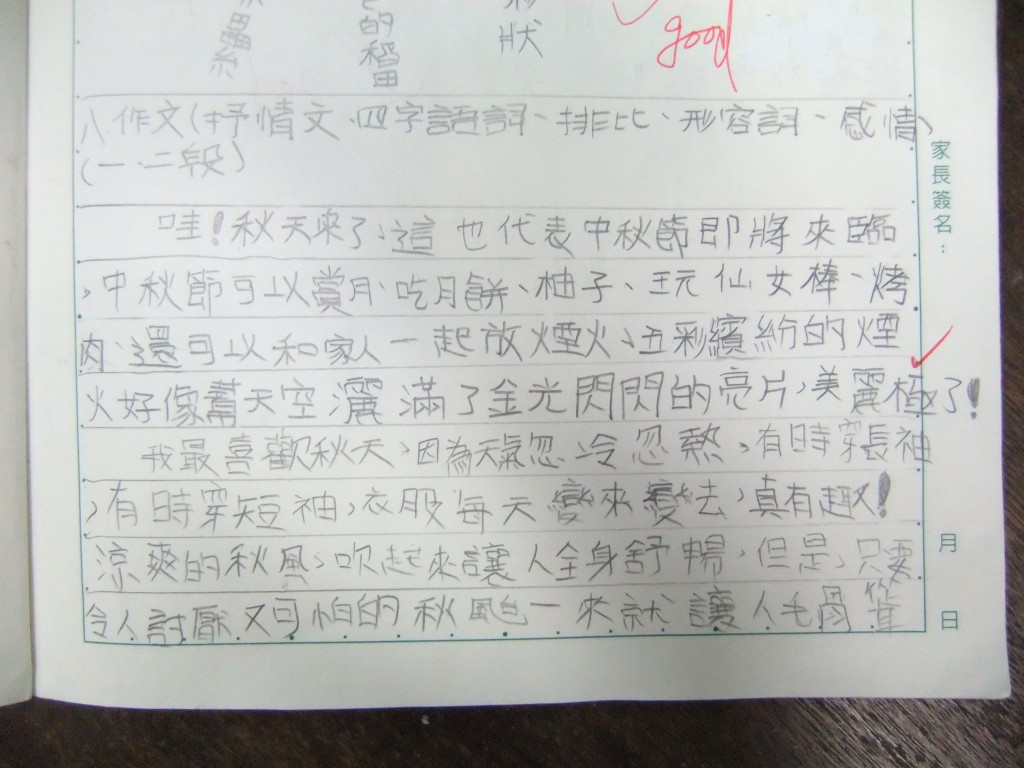 形狀
色的稻田
good
八作文(抒情文、四字語詞、排比、形容詞、感情)
(一、二段)
哇!秋天來了,這也代表中秋節即將來臨
,中秋節可以賞月、吃月餅、柚子、玩仙女棒、烤
肉,還可以和家人一起放煙火,五彩繽紛的煙
火好像幫天空灑滿了金光閃閃的亮片,美麗極了!
我最喜歡秋天,因為天氣忽冷忽熱,有時穿長袖
,有時穿短袖,衣服每天變來變去,真有趣!
涼爽的秋風,吹起來讓人全身舒暢,但是,只要
令人討厭又可怕的秋颱一來就讓人毛骨
家長簽名:
月
日